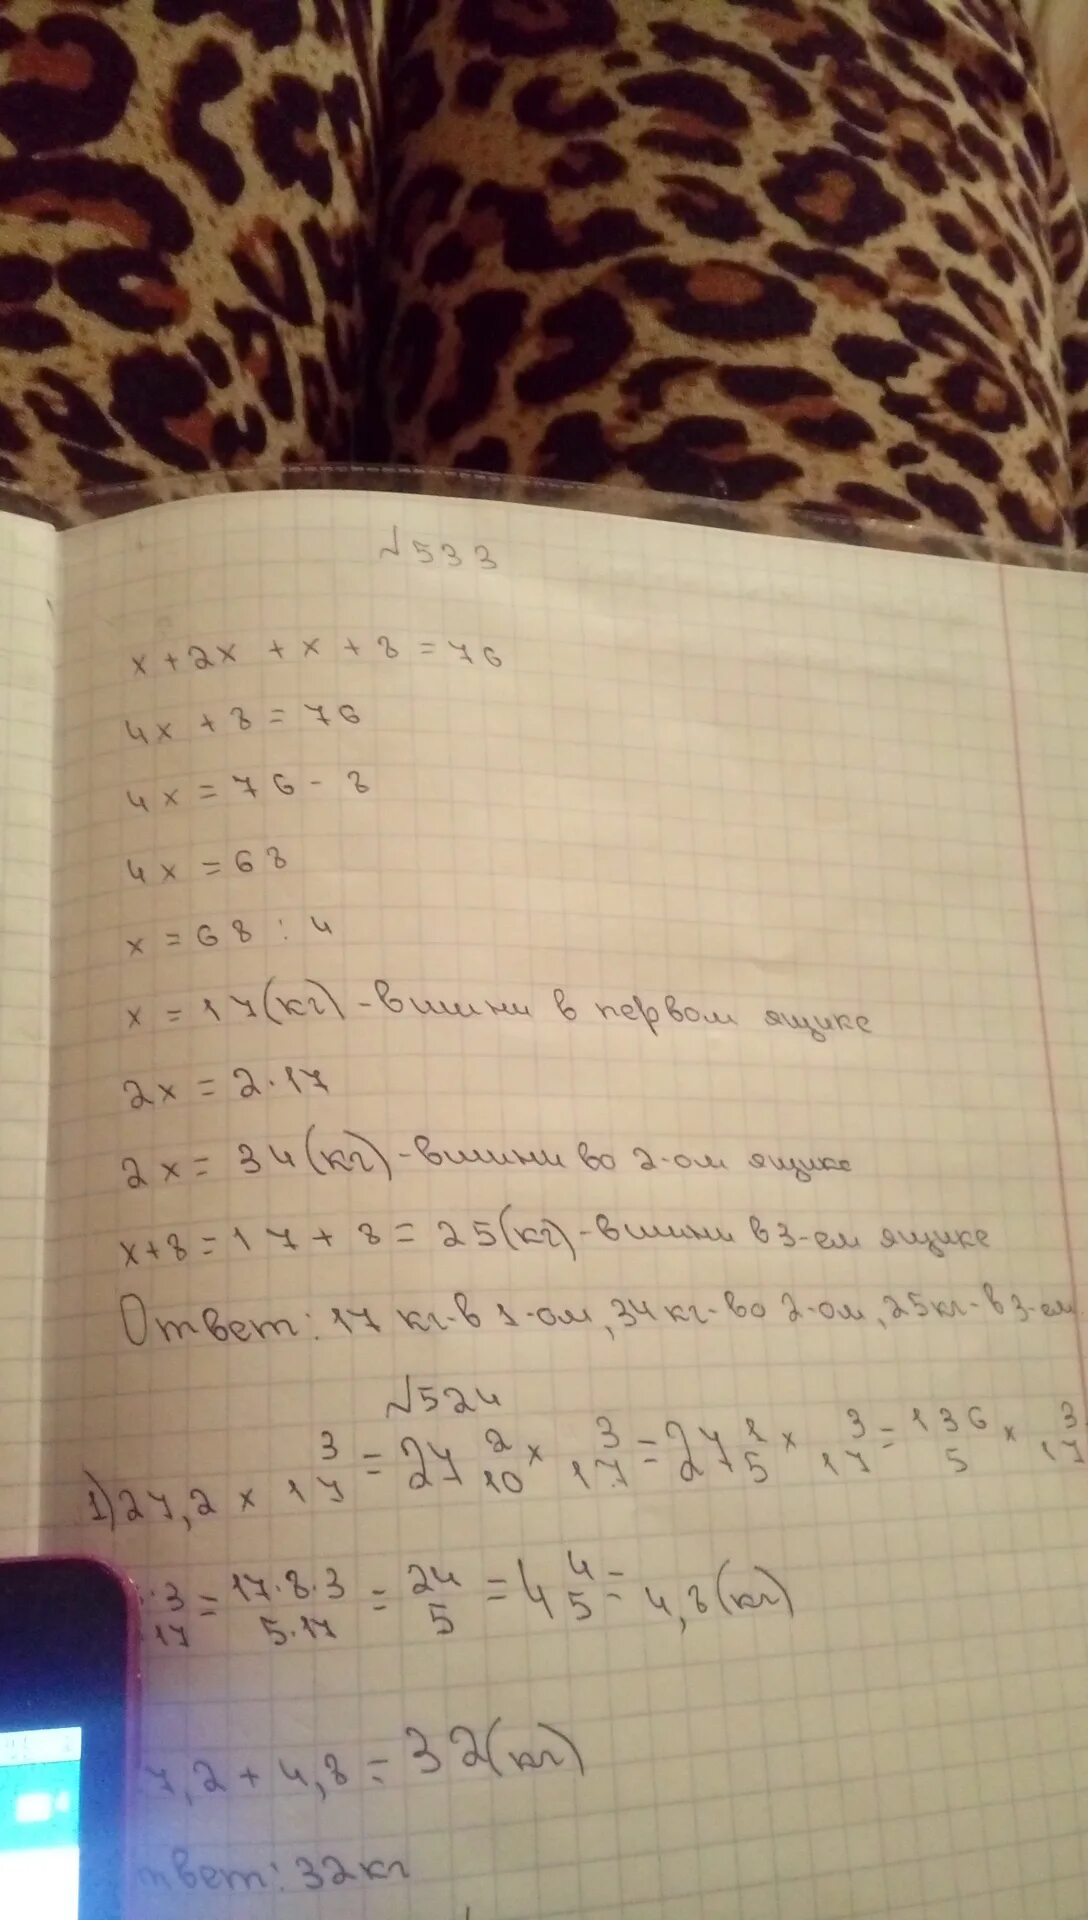 №533
x + 2x + x + 8 = 76
4x + 8 = 76
4x = 76 - 8
4x = 68
x = 68 : 4
x = 17(кг) - вишни в первом ящике
2x = 2 · 17
2x = 34(кг) - вишни во 2-ом ящике
x + 8 = 17 + 8 = 25(кг) - вишни в 3-ем ящике
Ответ: 17 кг - в 1-ом, 34 кг - во 2-ом, 25кг - в 3-ем
№524
1) 27,2 × 3/17 = 27 2/10 × 3/17 = 27 1/5 × 3/17 = 136/5 × 3/17
· 3/· 17 = 17·8·3/5·17 = 24/5 = 4 4/5 = 4,8(кг)
7,2 + 4,8 = 32(кг)
твет: 32кг